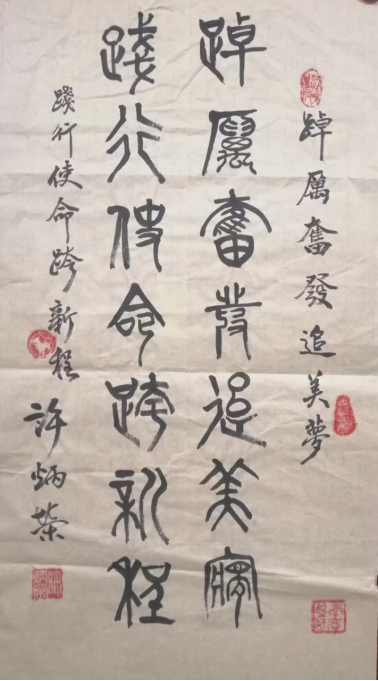 踔厲奮發追美夢
踔厲奮發追美夢
踐行使命跨新程
踐行使命跨新程
許炳榮